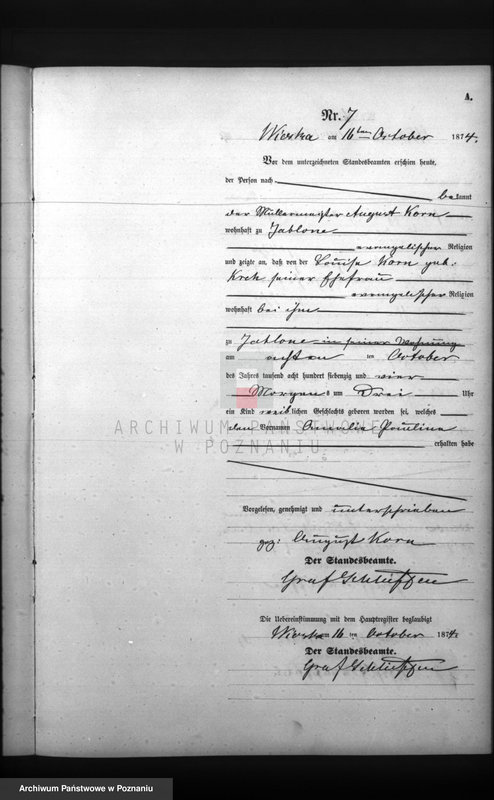 A.
Nr. 7
Wioska am 16ten October 1874.
Vor dem unterzeichneten Standesbeamten erschien heute,
der Person nach
bekannt
der Müllermeister August Korn
wohnhaft zu Jablone
evangelischer Religion
und zeigte an, daß von der Louise Korn geb.
seiner Ehefrau
evangelischer Religion
wohnhaft bei ihm
zu Jablone in seiner Wohnung
am achten ten October
des Jahres tausend acht hundert siebenzig und vier
Morgens um Drei Uhr
ein Kind weiblichen Geschlechts geboren worden sei, welches
den Vornamen Amalia Pauline
erhalten habe
ARCHIWUM PAŃSTWOWE
W POZNANIU
Vorgelesen, genehmigt und unterschrieben
gez: August Korn
Der Standesbeamte.
Graf Schlieffen
Die Uebereinstimmung mit dem Hauptregister beglaubigt
Wioska am 16 ten October 1874
Der Standesbeamte.
Graf Schlieffen
Archiwum Państwowe w Poznaniu